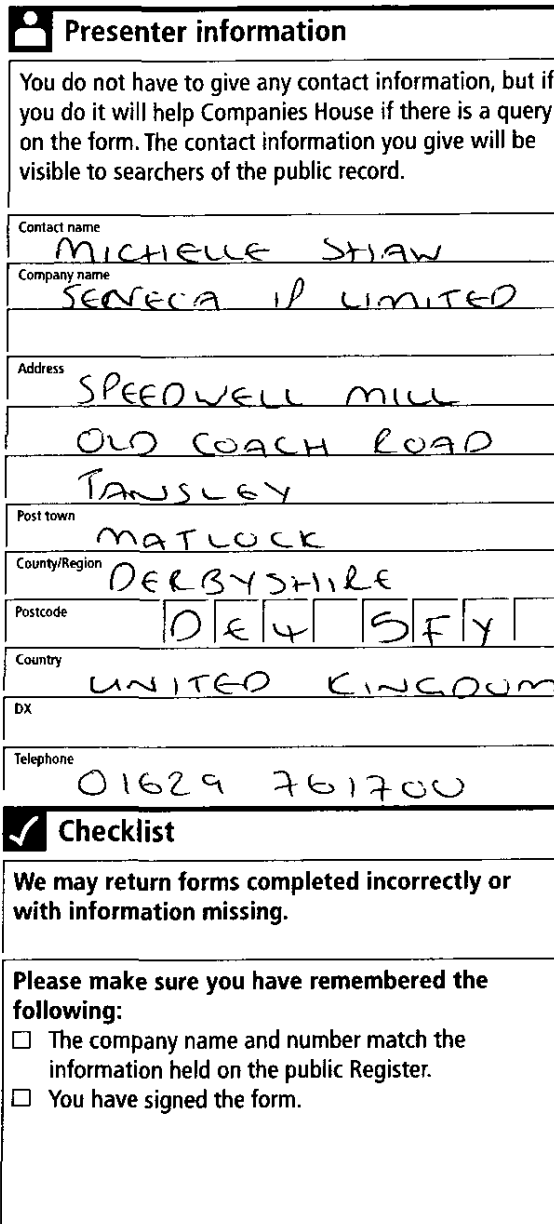 Presenter information
You do not have to give any contact information, but if
you do it will help Companies House if there is a query
on the form. The contact information you give will be
visible to searchers of the public record.
Contact name
MICHELLE SHAW
Company name
SENECA IP LIMITED
Address
SPEEDWELL MILL
OLD COACH ROAD
TANSLEY
Post town
MATLOCK
County/Region
DERBYSHIRE
Postcode
DE4 5FY
Country
UNITED KINGDOM
DX
Telephone
01629 761700
Checklist
We may return forms completed incorrectly or
with information missing.
Please make sure you have remembered the
following:
☐ The company name and number match the
information held on the public Register.
☐ You have signed the form.